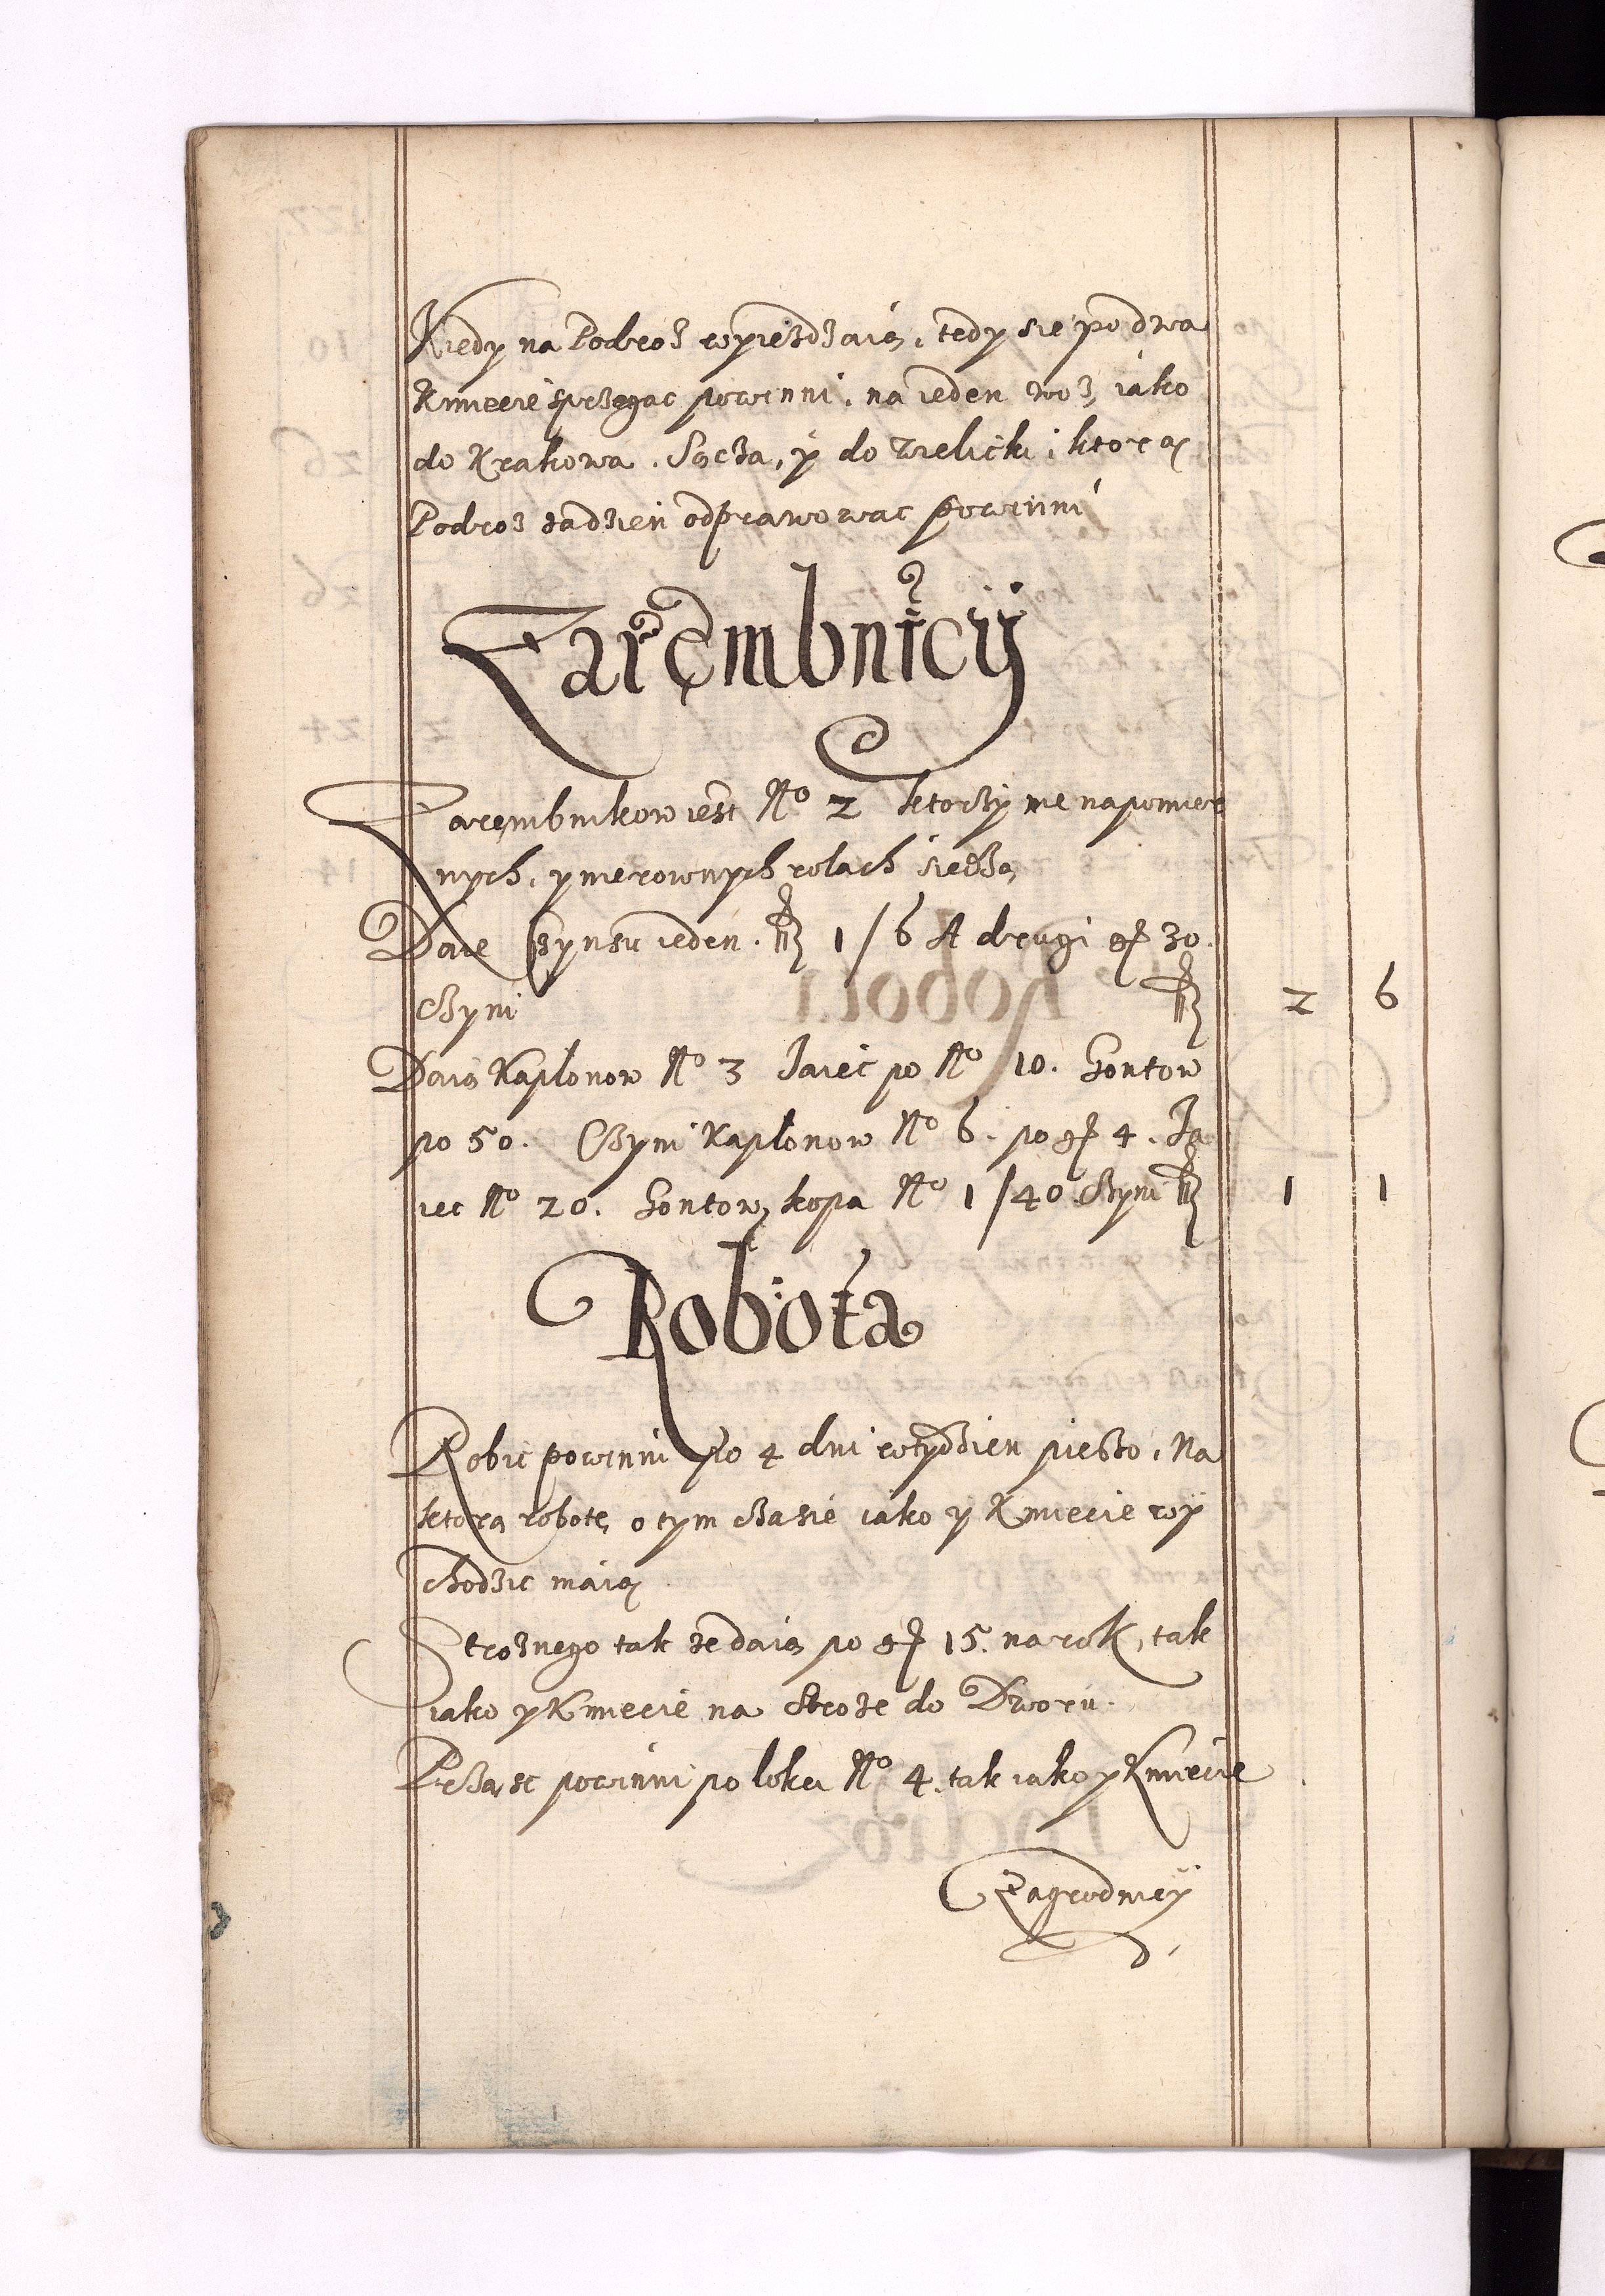 Kiedy na Podroz wyiezdzaią, tedy sie po dwa
Kmiecie sprzegac powinni, na ieden woz, iako
do Krakowa, Sącza, y do Wielicki, ktorą
Podroz zadzien odprawowac powinni
Zarembnicy
Zarembnikow iest No 2 ktorzy nie na pomier
nych, y nierownych rolach siedzą
Daie Czynszu ieden. fl 1/6 A drugi gr 30.
Czyni fl 2 6
Daią Kapłonow No 3 Jaiec po No 10. Gontow
po 50. Czyni Kapłonow No 6. po gr 4. Ja
iec No 20. Gontow, kopa No 1/40. Czyni fl 1 1
Robota
Robic powinni po 4 dni wtydzien pieszo, Na
ktorą robotę, o tym czasie iako y Kmiecie wy
chodzic maią
Stroznego tak ze daią po gr 15. na rok, tak
iako y Kmiecie na Stroze do Dworu.
Prząsc powinni po łokci No 4. tak iako y Kmiecie
Zagrodnicy